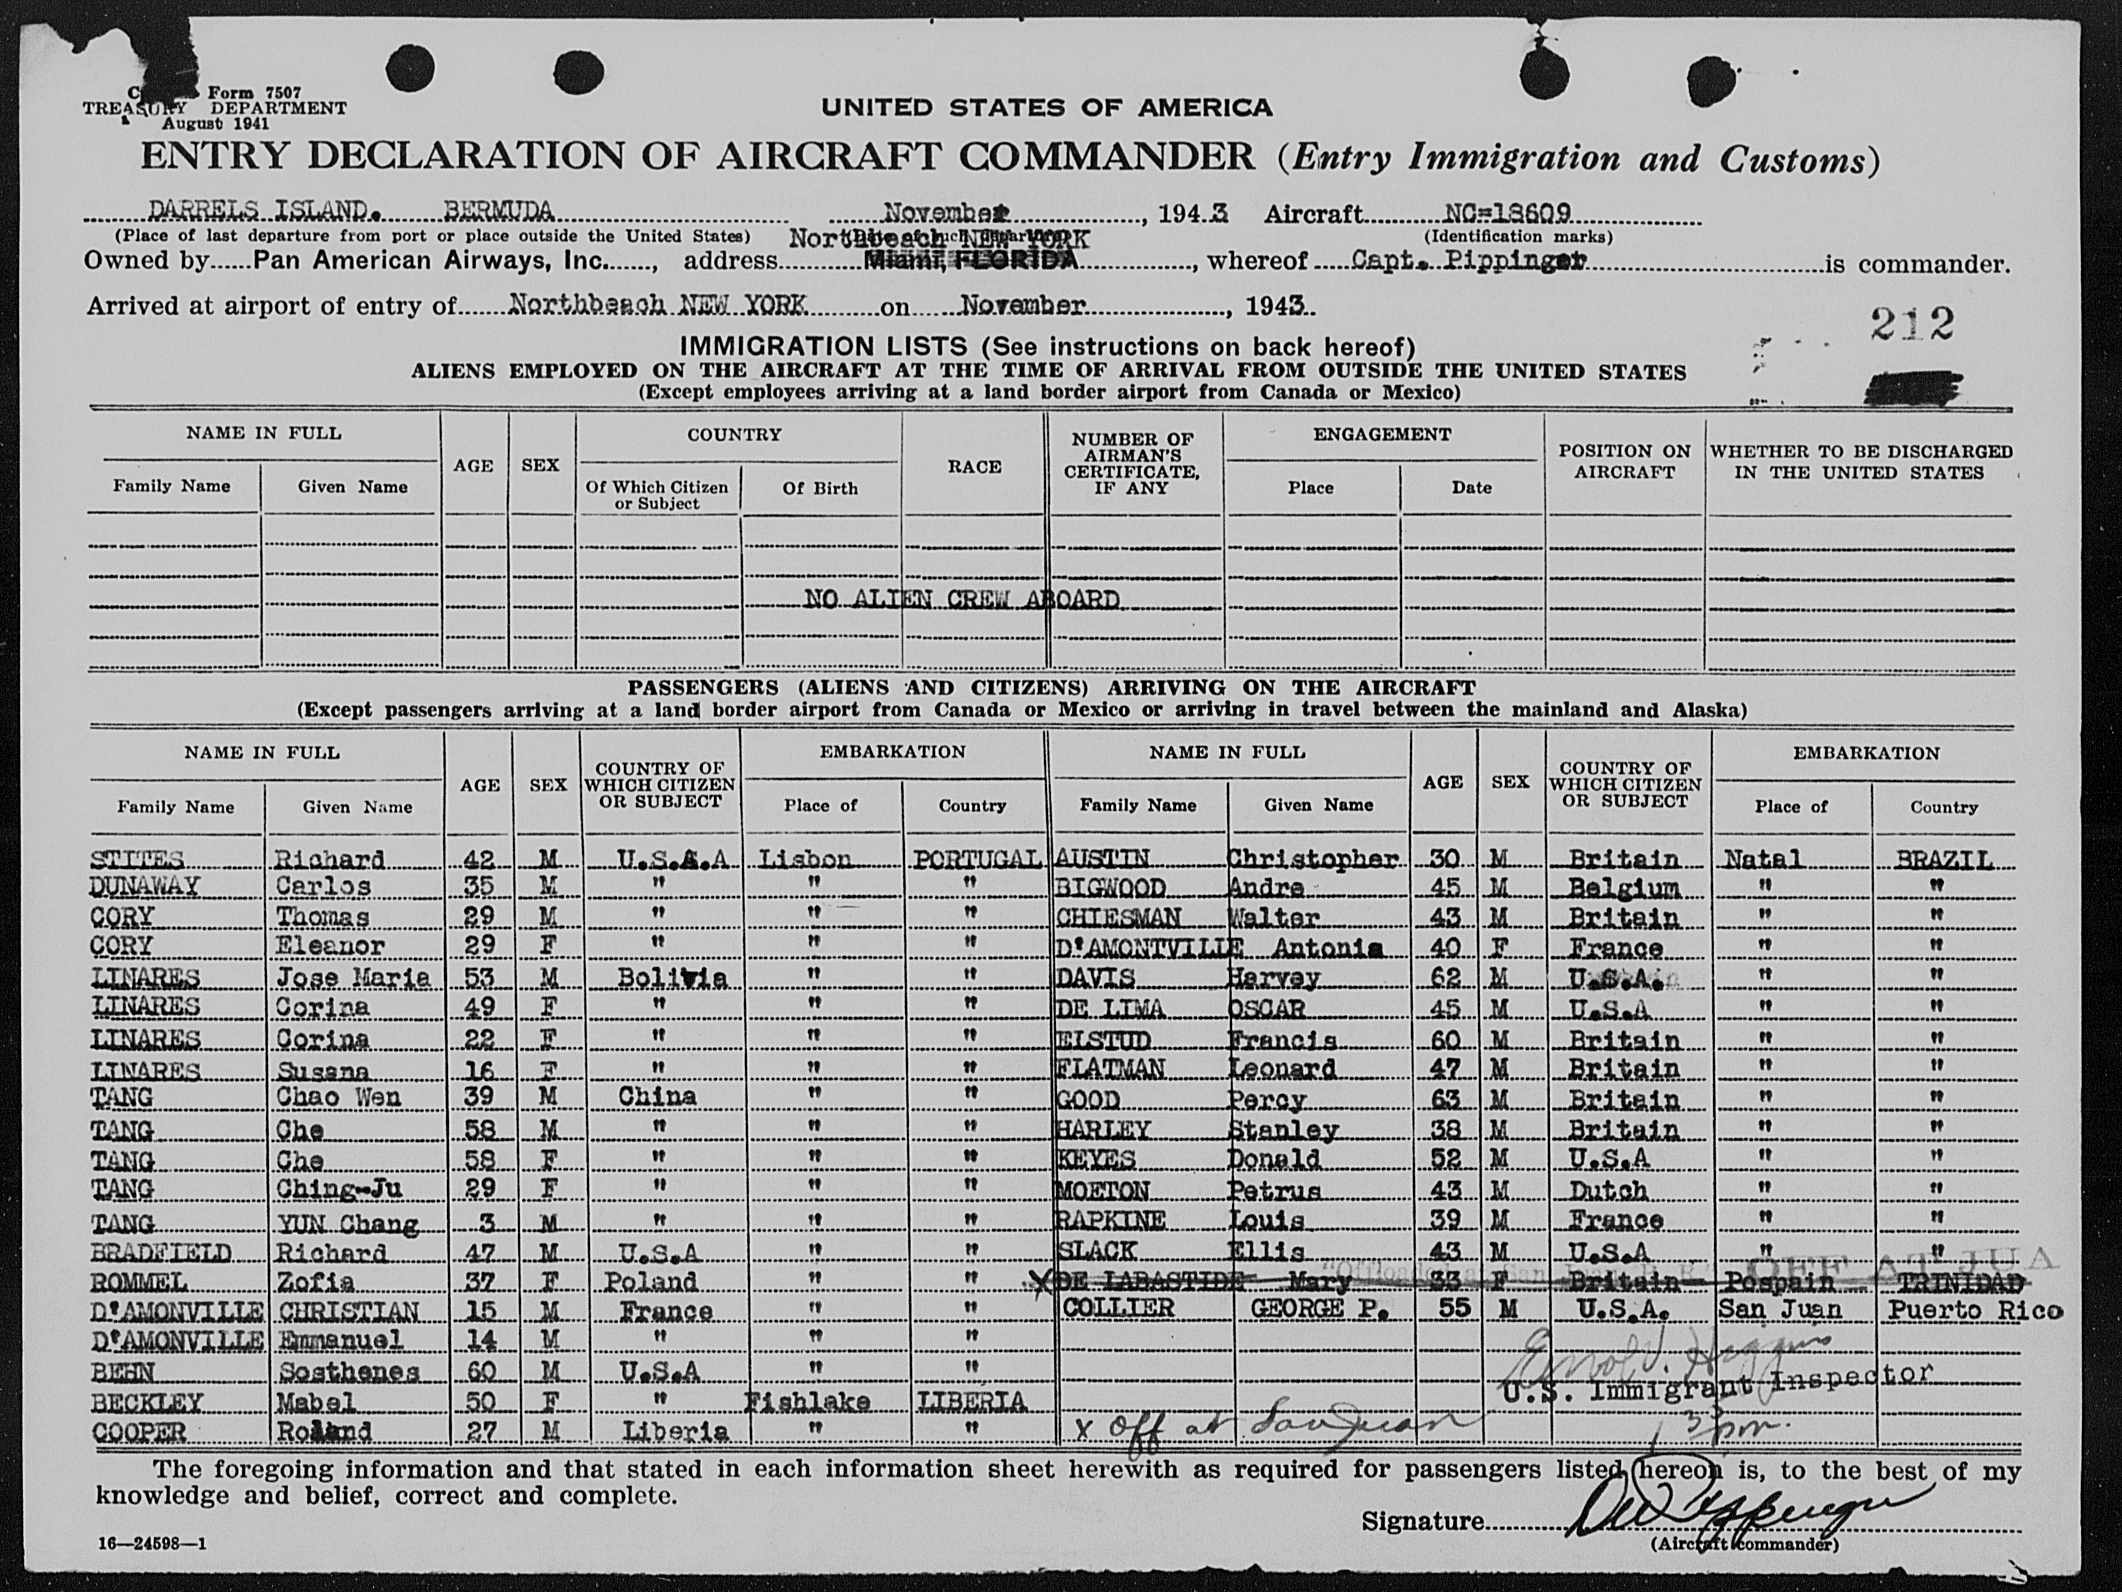 Form 7507
TREASURY DEPARTMENT
August 1941
UNITED STATES OF AMERICA
ENTRY DECLARATION OF AIRCRAFT COMMANDER (Entry Immigration and Customs)
DARRELS ISLAND. BERMUDA November, 1943 Aircraft NC=18609
(Place of last departure from port or place outside the United States) Northbeach NEW YORK (Identification marks)
Owned by Pan American Airways, Inc., address Miami, FLORIDA, whereof Capt. Pippinger is commander.
Arrived at airport of entry of Northbeach NEW YORK on November, 1943.
212
IMMIGRATION LISTS (See instructions on back hereof)
ALIENS EMPLOYED ON THE AIRCRAFT AT THE TIME OF ARRIVAL FROM OUTSIDE THE UNITED STATES
(Except employees arriving at a land border airport from Canada or Mexico)
NAME IN FULL AGE SEX COUNTRY RACE NUMBER OF AIRMAN'S CERTIFICATE, IF ANY ENGAGEMENT POSITION ON AIRCRAFT WHETHER TO BE DISCHARGED IN THE UNITED STATES
Family Name Given Name Of Which Citizen or Subject Of Birth Place Date
NO ALIEN CREW ABOARD
PASSENGERS (ALIENS AND CITIZENS) ARRIVING ON THE AIRCRAFT
(Except passengers arriving at a land border airport from Canada or Mexico or arriving in travel between the mainland and Alaska)
NAME IN FULL AGE SEX COUNTRY OF WHICH CITIZEN OR SUBJECT EMBARKATION NAME IN FULL AGE SEX COUNTRY OF WHICH CITIZEN OR SUBJECT EMBARKATION
Family Name Given Name Place of Country Family Name Given Name Place of Country
STITES Richard 42 M U.S.A Lisbon PORTUGAL AUSTIN Christopher 30 M Britain Natal BRAZIL
DUNAWAY Carlos 35 M " " " BIGWOOD Andre 45 M Belgium " "
CORY Thomas 29 M " " " CHIESMAN Walter 43 M Britain " "
CORY Eleanor 29 F " " " D'AMONTVILLE Antonia 40 F France " "
LINARES Jose Maria 53 M Bolivia " " DAVIS Harvey 62 M U.S.A. " "
LINARES Corina 49 F " " " DE LIMA OSCAR 45 M U.S.A " "
LINARES Corina 22 F " " " ELSTUD Francis 60 M Britain " "
LINARES Susana 16 F " " " FLATMAN Leonard 47 M Britain " "
TANG Chao Wen 39 M China " " GOOD Percy 63 M Britain " "
TANG Che 58 M " " " HARLEY Stanley 38 M Britain " "
TANG Che 58 F " " " KEYES Donald 52 M U.S.A " "
TANG Ching-Ju 29 F " " " MOETON Petrus 43 M Dutch " "
TANG YUN Chang 3 M " " " RAPKINE Louis 39 M France " "
BRADFIELD Richard 47 M U.S.A " " SLACK Ellis 43 M U.S.A " "
OFF AT JUA
ROMMEL Zofia 37 F Poland " " X DE LABASTIDE Mary 33 F Britain Pospain TRINIDAD
D'AMONVILLE CHRISTIAN 15 M France " " COLLIER GEORGE P. 55 M U.S.A. San Juan Puerto Rico
D'AMONVILLE Emmanuel 14 M " " "
BEHN Sosthenes 60 M U.S.A " "
BECKLEY Mabel 50 F " Fishlake LIBERIA U.S. Immigrant Inspector
COOPER Roland 27 M Liberia " " x Off at San Juan
The foregoing information and that stated in each information sheet herewith as required for passengers listed hereon is, to the best of my
knowledge and belief, correct and complete.
Signature
(Aircraft commander)
16—24598—1